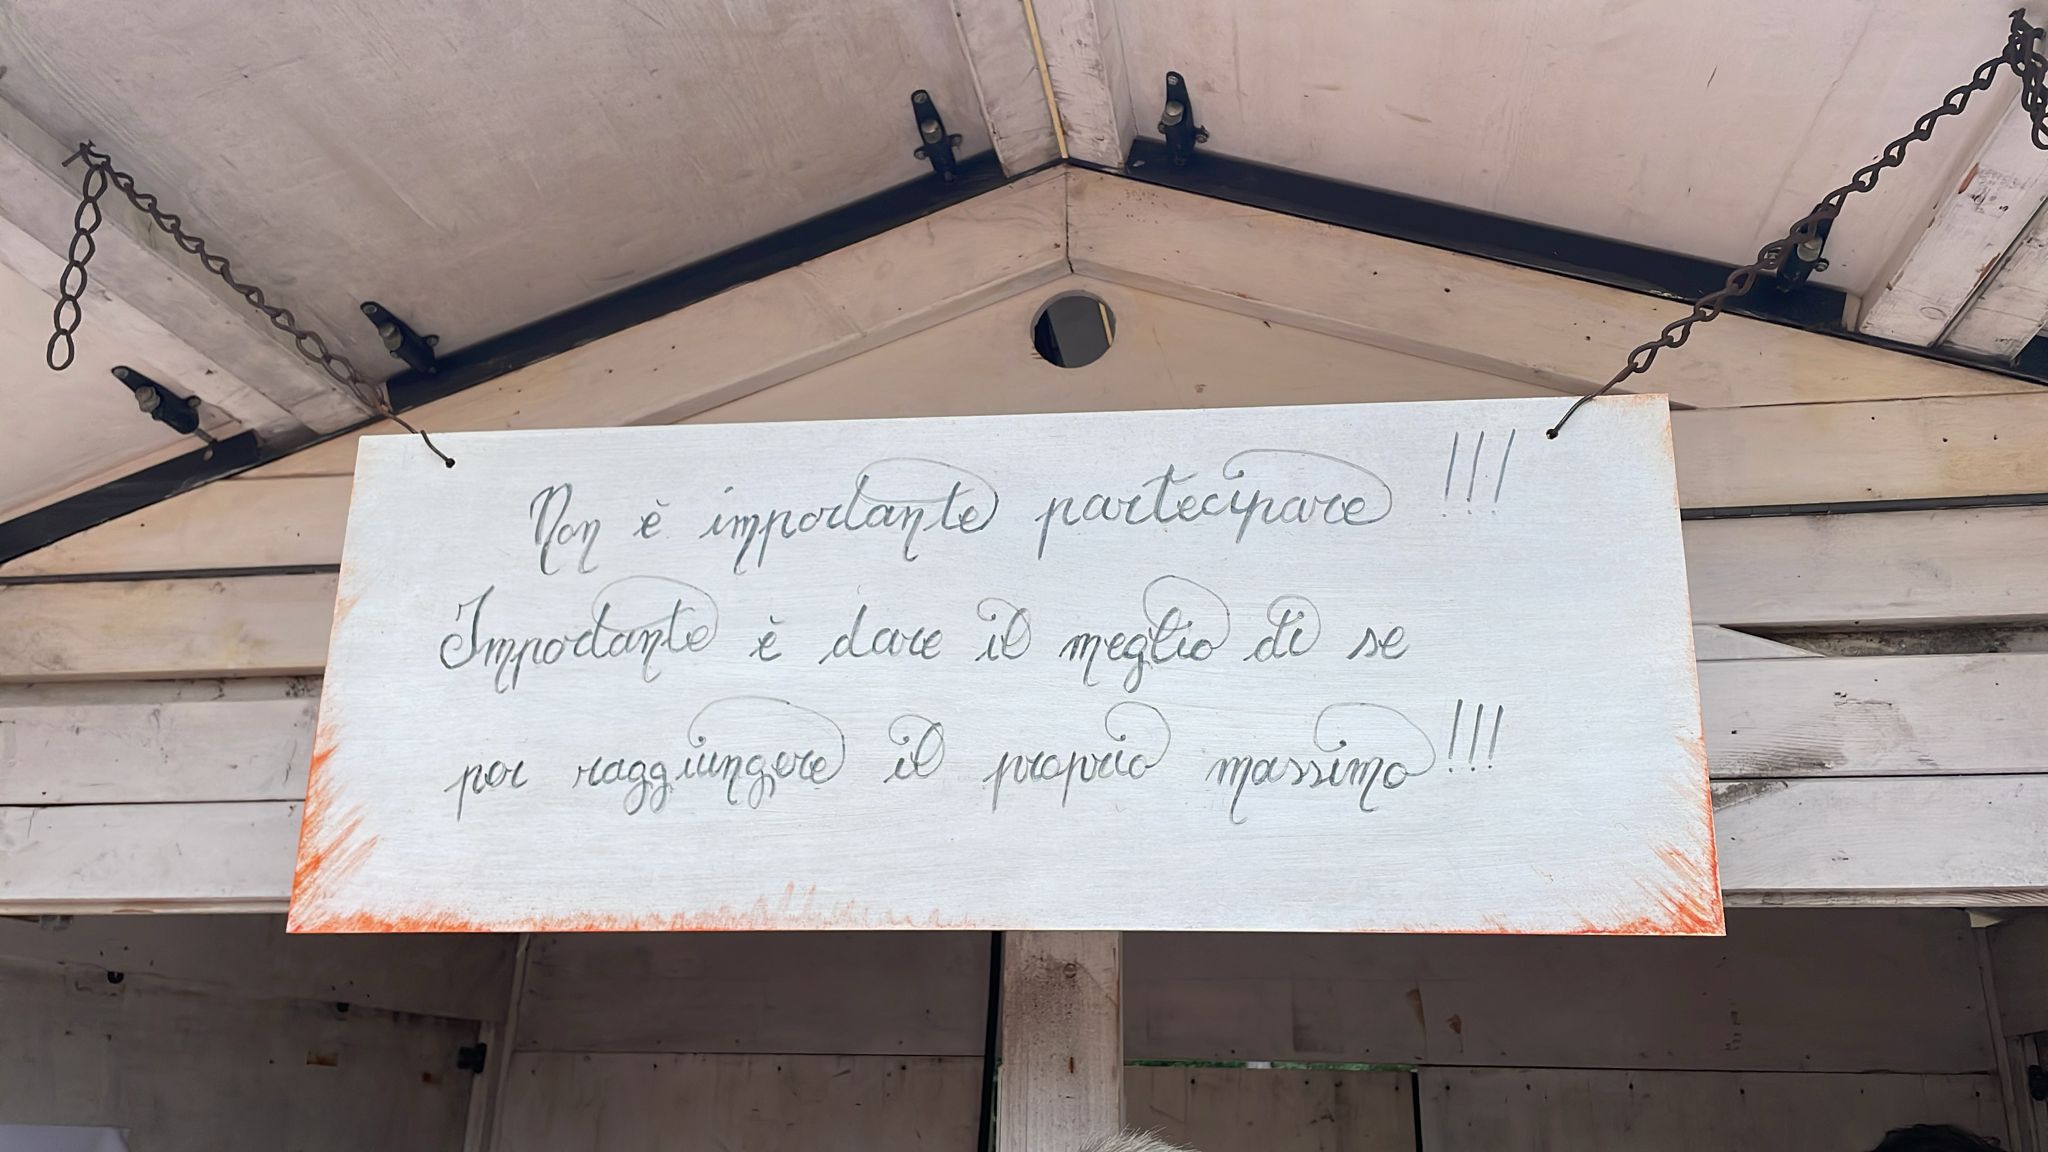 Non è importante partecipare !!!
Importante è dare il meglio di se
per raggiungere il proprio massimo!!!